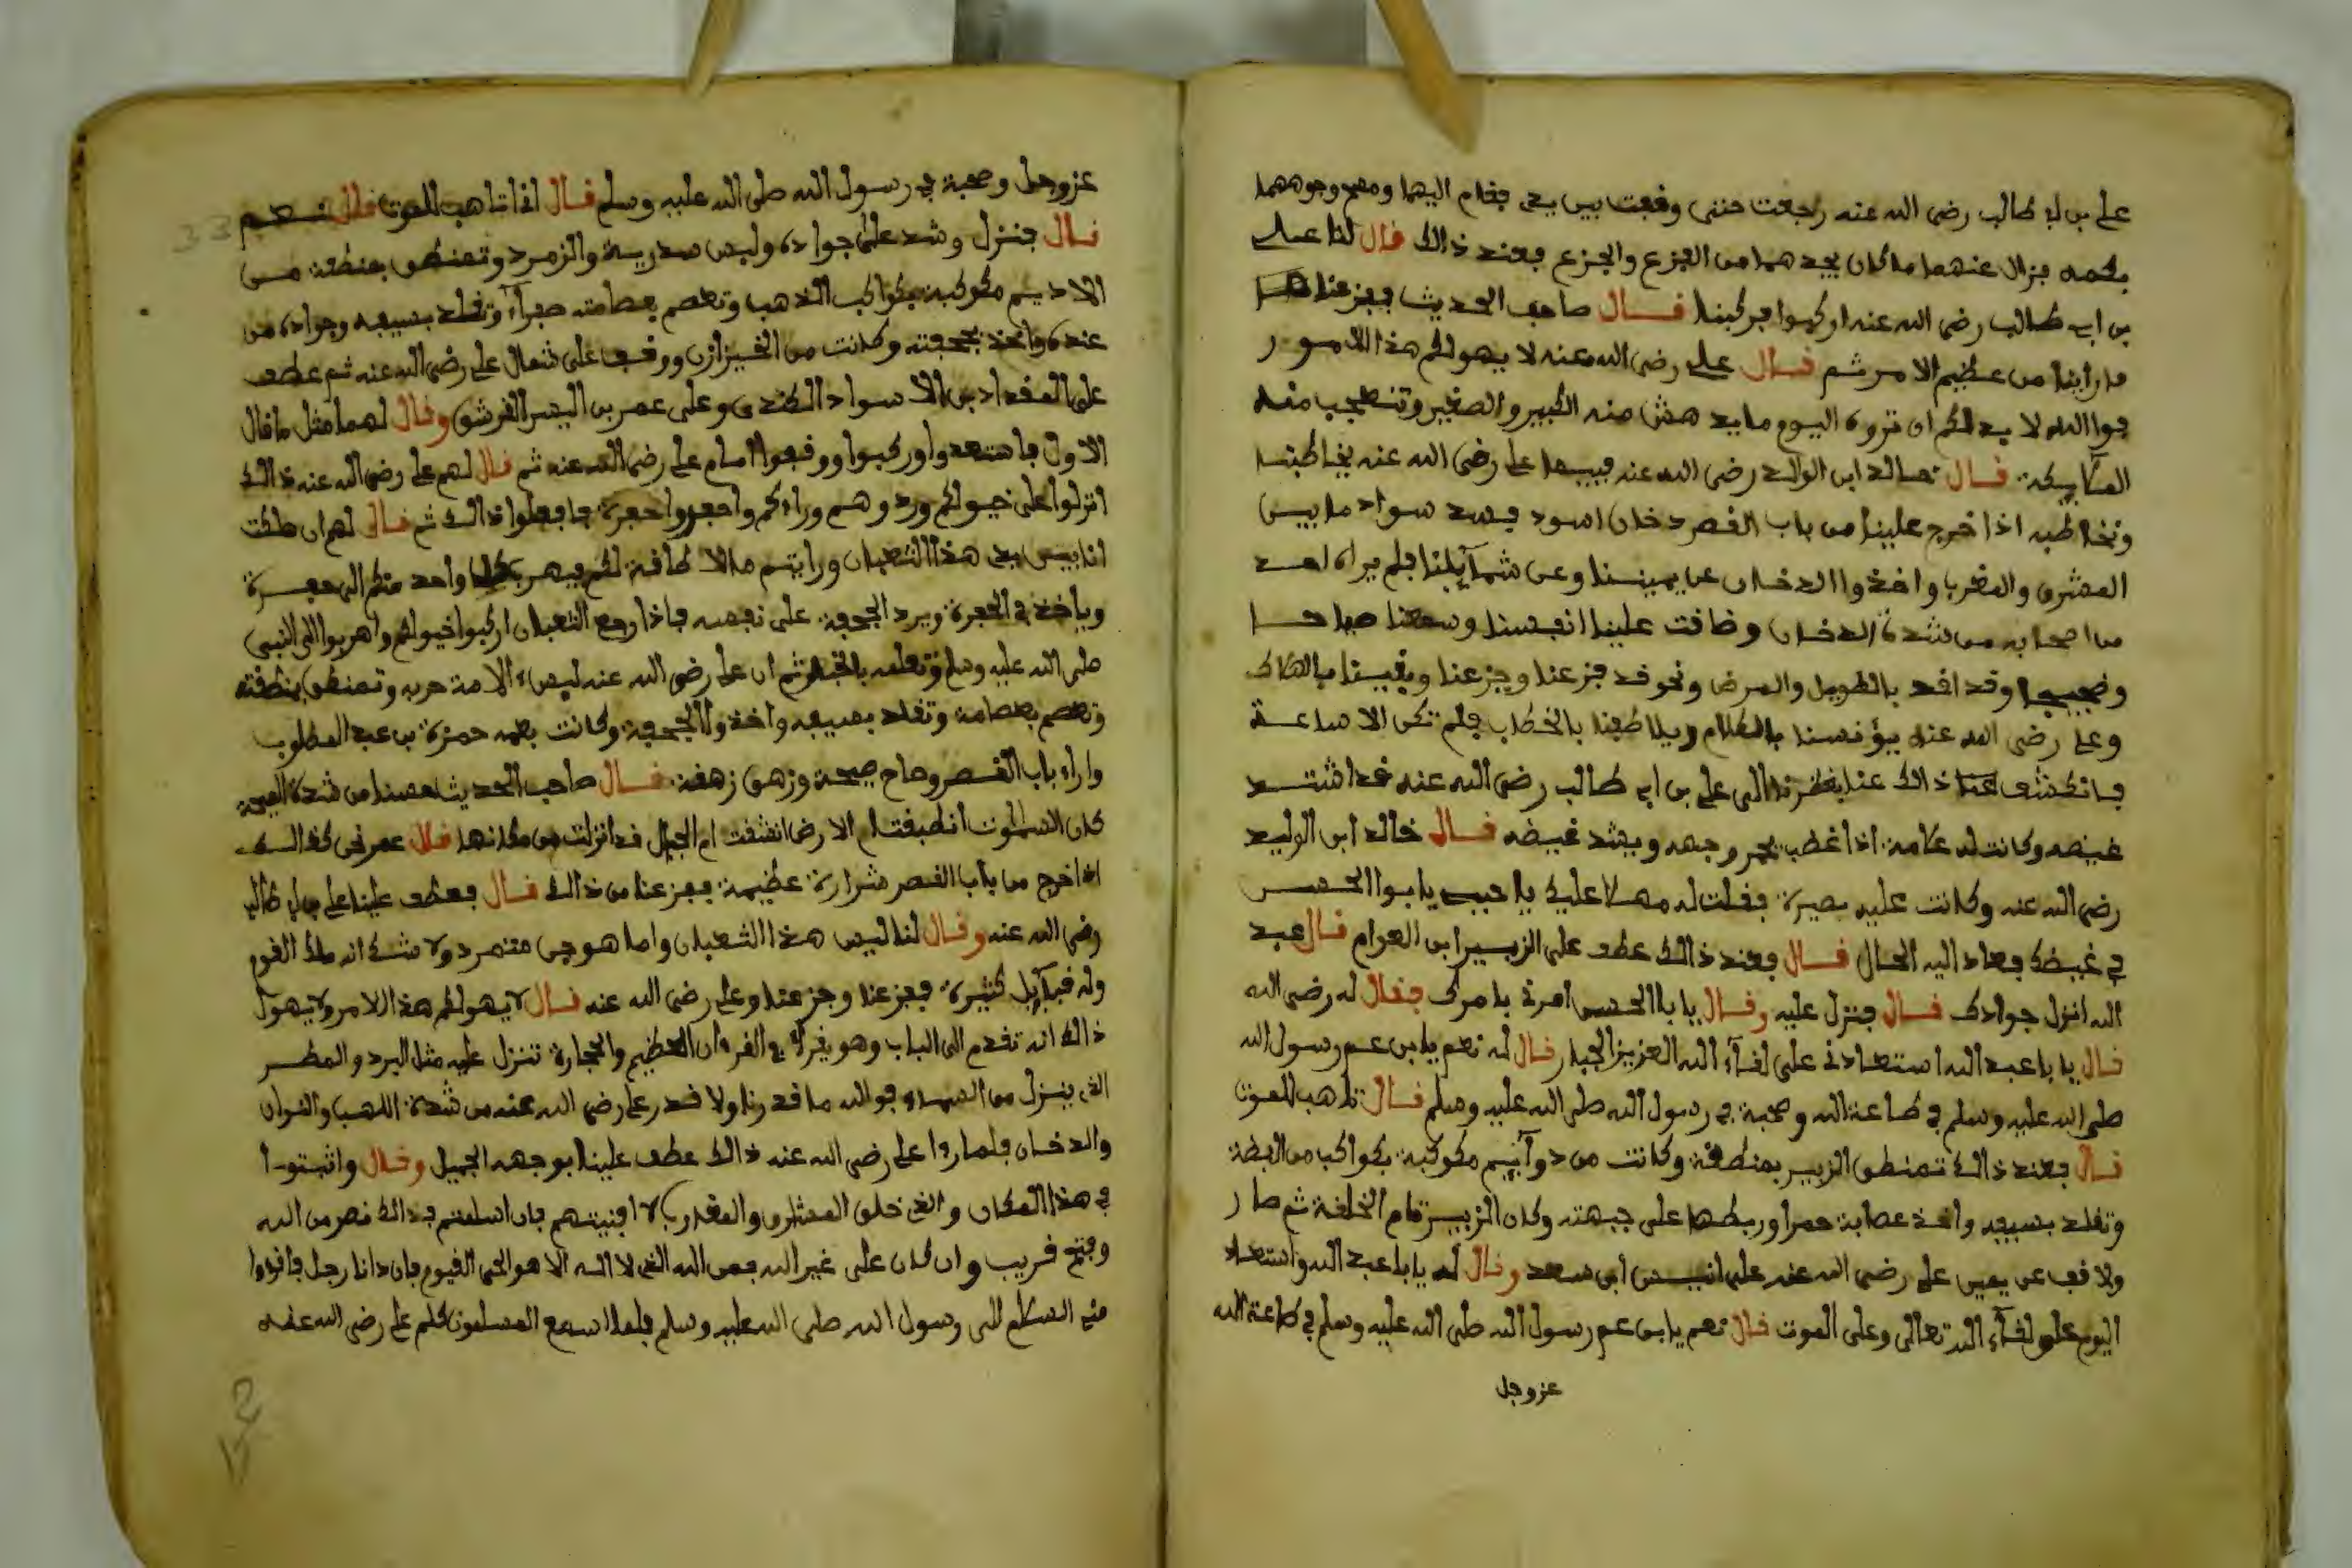 علي بن ابي طالب رضي الله عنه رجعت حتى وقفت بين يدي فقام اليهما ومسح وجوههما
بكمه فزال عنهما ما كان يجدهما من الفزع والجزع فعند ذالك قال لنا علي
بن ابي طالب رضي الله عنه اركبوا فركبنا قال صاحب الحديث ففزعنا
مارأينا من عظيم الامر ثم قال علي رضي الله عنه لا يهولكم هذا الامور
فوا الله لا بد لكم ان تروه اليوم ما يدهش منه الكبير والصغير وتتعجب منه
الملآيكة قال خالد ابن الوليد رضي الله عنه فبينما علي رضي الله عنه يخاطبنا
ونخاطبه اذا خرج علينا من باب القصر دخان اسود فسد سواد ما بين
المشرق والمغرب واخذوا الدخان عن يميننا وعن شمآيلنا فلم يراه احد
من اصحابه من شدة الدخان وضاقت علينا انفسنا وسمعنا صياحا
وضجيجا وقد اخذ بالطويل والعرض ونحو قد فزعنا وجزعنا ويقينا بالهلاك
وعلي رضي الله عنه يؤنسنا بالكلام ويلاطفنا بالخطاب فلم تكن الا ساعة
فانكشف ذالك عنا فنظرنا الى علي بن ابي طالب رضي الله عنه قد اشتد
غيضه وكانت له علامة اذا غضب يحمر وجهه ويشتد غيضه قال خالد ابن الوليد
رضي الله عنه وكانت عليه بصيرة فقلت له مهلا عليك يا حبيب يا بوا الحسن
في غيضك فعاد اليه الحال قال فعند ذالك عطف على الزبير ابن العوام قال عبد
الله انزل جوادك قال فنزل عليه وقال يا بالحسن امرني بامرك فقال له رضي الله
قال يا با عبد الله استعادني على لقآء الله العزيز الجبار قال له نعم يا بن عم رسول الله
صلى الله عليه وسلم في طاعة الله وصحبة في رسول الله صلى الله عليه وسلم قال تاهب للموت
قال فعند ذالك تمنطق الزبير بمنطقة وكانت من مكوكبة بكواكب من الفضة
وتقلد بسيفه واخذ عصابة حمرا وربطها على جبهته وكان الزبير تمام الخلقة ثم صار
ولاقف عن يمين علي رضي الله عنه على انيس ابن سعد وقال له يا با عبد الله واستعاد
اليوم على لقآء الله تعالى وعلى الموت قال نعم يا بن عم رسول الله صلى الله عليه وسلم في طاعة الله
عز وجل
عز وجل وصحبة في رسول الله صلى الله عليه وسلم قال اذا تاهب للموت قال نعم
قال فنزل وشد على جواده ولبس والزمرد وتمنطق بمنطقة من
الاديم مكوكبة بكواكب الذهب وتعصم بعصامته صفرآء وتقلد بسيفه وجواده من
عنده واخذ بجحفته وكانت من الخيزازن ووقف على شمال علي رضي الله عنه ثم عطف
على المقداد بن الاسواد الكندي وعلى عمر بن القرشي وقال لهما مثل ما قال
الاول فاستعدوا وركبوا ووقفوا امام علي رضي الله عنه ثم قال لهم علي رضي الله عنه ذالك
انزلوا على خيولكم وردوهم وراءكم واحفروا حفرة فافعلوا ذالك ثم قال لهم ان هلكت
انا بين يدي هذا الثعبان ورايتم مالا طاقة لكم فيهرب كل واحد منكم الى حفرة
وياخذ في الحفرة ويرد الجحفة على نفسه فاذا رجع الثعبان اركبوا خيولكم واهربوا الى النبي
صلى الله عليه وسلم وتعلمه بالخبر ثم ان علي رضي الله عنه لبس لامة حربه وتمنطق بمنطقته
وتعصم بعصامة وتقلد بسيفه واخذوا الجحفة وكانت بعمه حمزة بن عبد المطلوب
واراد باب القصر وصاح صيحة وزهق زهقة قال صاحب الحديث من شدة الصيحة
كان السماوت انطبقت ام الارض انشقت ام الجبال قد انزلت من مكانها قال عمر نحن كذالك
اذا خرج من باب القصر شرارة عظيمة ففزعنا من ذالك قال فعطف علينا علي بن ابي طالب
رضي الله عنه وقال لنا ليس هذا الثعبان وانما هو جن متمرد ولا شك انه ملك القوم
وله قبآيل كثيرة ففزعنا وجزعنا وعلي رضي الله عنه قال لا يهولكم هذا الامر ولا يهول
ذالك انه تقدم الى الباب وهو يقرأ في القرءان العظيم والحجارة تنزل عليه مثل البرد والمطر
الذي ينزل من السماء فو الله ما قدرنا ولا قدر علي رضي الله عنه من شدة اللهب والنيران
والدخان فلما راءا علي رضي الله عنه ذالك عطف علينا بوجهه الجميل وقال واثبتوا
في هذا المكان والذي خلق المشارق والمغارب لا افنيتهم فان اسلمتم فذالك نصر من الله
وفتح قريب وان كان على غير الله فمن الله الذي لا اله الا هو الحي القيوم فان دانا رجل فاقرءوا
مني السلام الى رسول الله صلى الله عليه وسلم فلما سمع المسلمون كلام علي رضي الله عنه
33